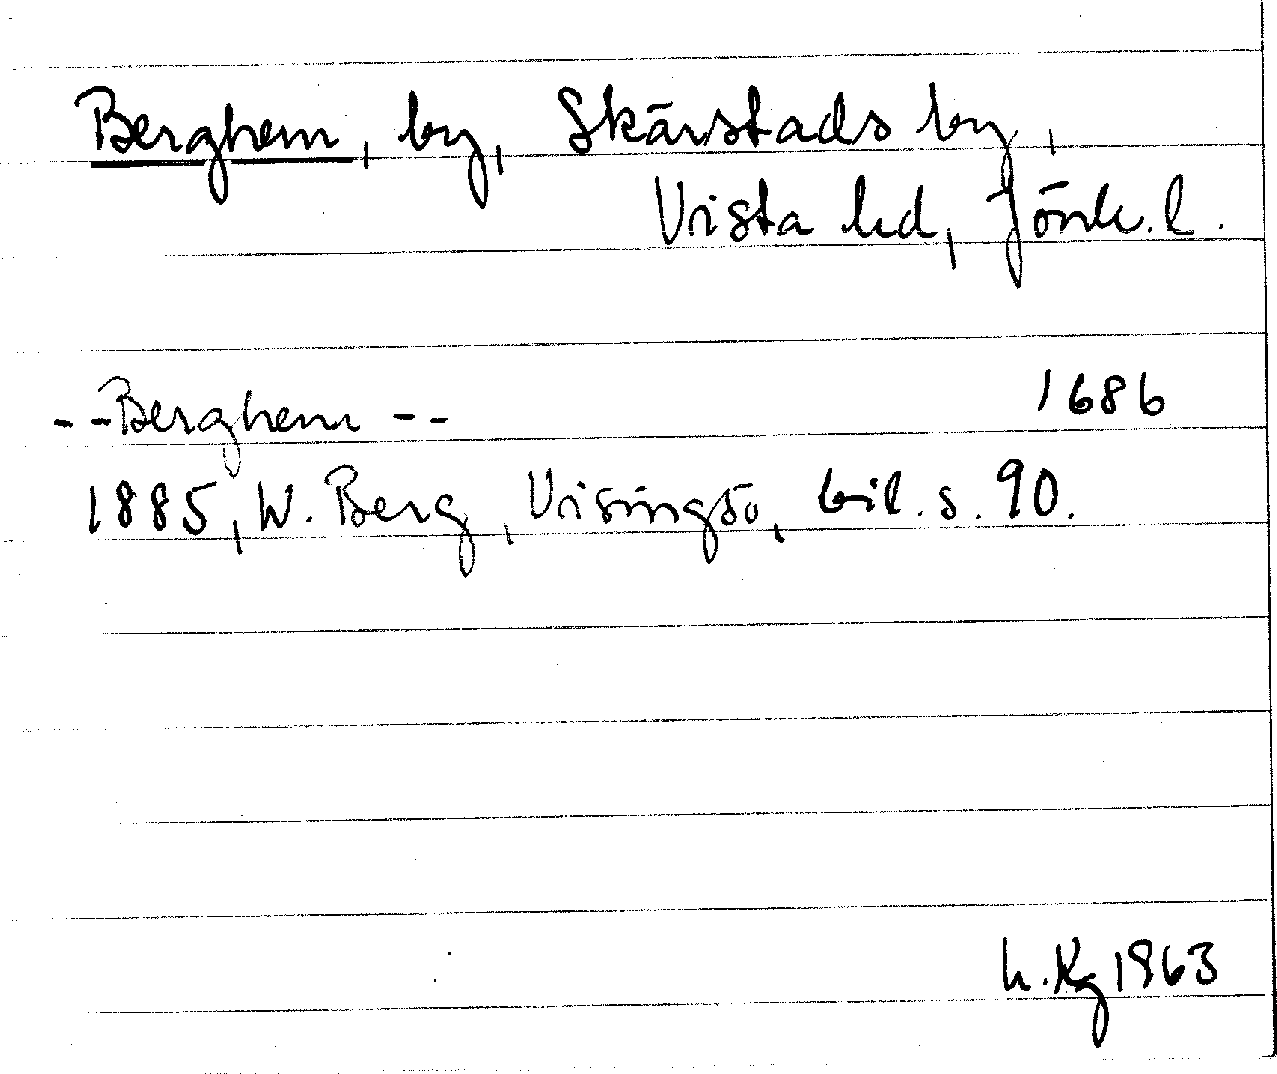 Berghem, by, Skärstads by,
Vista hd, Jönk. l.
--Berghem -- 1686
1885, W. Berg, Visingsö, bil. s. 90.
h. Kg 1963